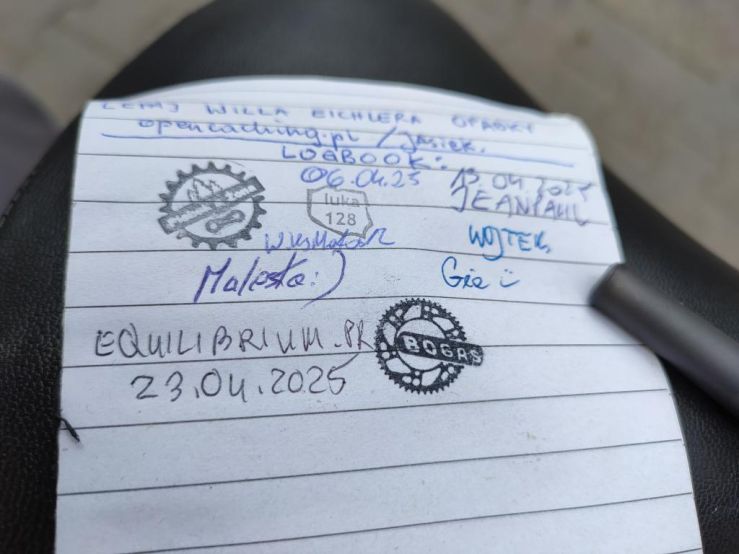 WILLA EICHLERA OPASKY
opencaching.pl / Jasiek.
LOGBOOK:
06.04.25
13.04.2025
JEANPAUL
luka
128
WOJTEK
Maleska:)
Gie
EQUILIBRIUM.PR
BOGAS
23.04.2025